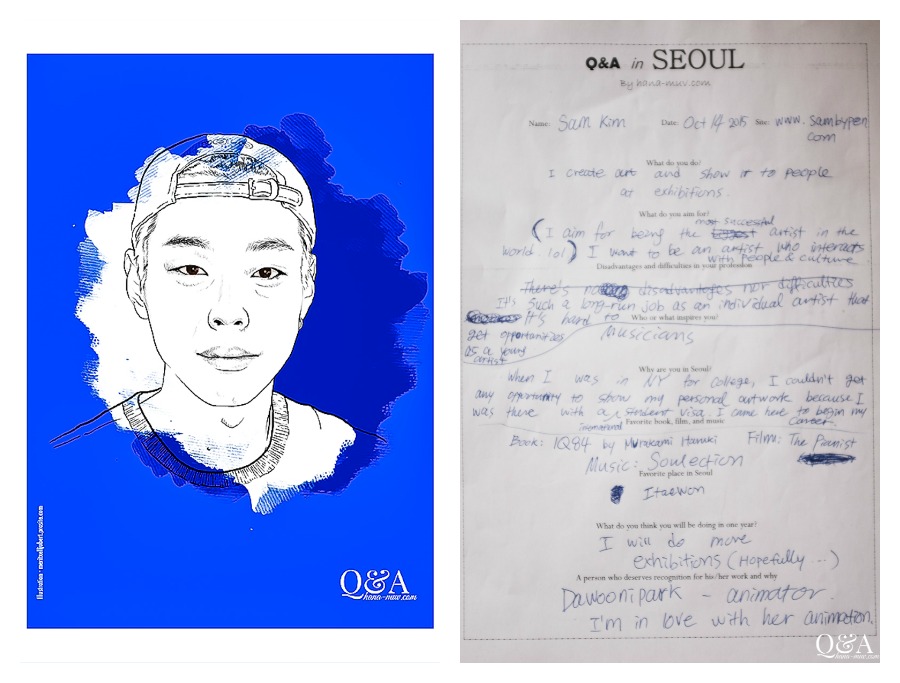 Illustration - maribelljobert.wixsite.com
Q&A
hana-muv.com
Q&A in SEOUL
By hana-muv.com
Name: Sam Kim Date: Oct 14 2015 Site: www.sambypen
com
What do you do?
I create art and show it to people
at exhibitions.
What do you aim for?
most successful
(I aim for being the biggest artist in the
world lol) I want to be an artist who interacts
with people & culture
Disadvantages and difficulties in your profession
There's no disadvantages nor difficulties
It's such a long-run job as an individual artist that
It's hard to
get opportunities
as a young
artist
Who or what inspires you?
Musicians
Why are you in Seoul?
When I was in NY for college, I couldn't get
any opportunity to show my personal artwork because I
was there with a student visa. I came here to begin my
international
career.
Favorite book, film, and music
Book: 1Q84 by Murakami Haruki Film: The Pianist
Music: Soulection
Favorite place in Seoul
Itaewon
What do you think you will be doing in one year?
I will do more
exhibitions (Hopefully ...)
A person who deserves recognition for his/her work and why
Dawoonipark - animator.
I'm in love with her animation.
Q&A
hana-muv.com